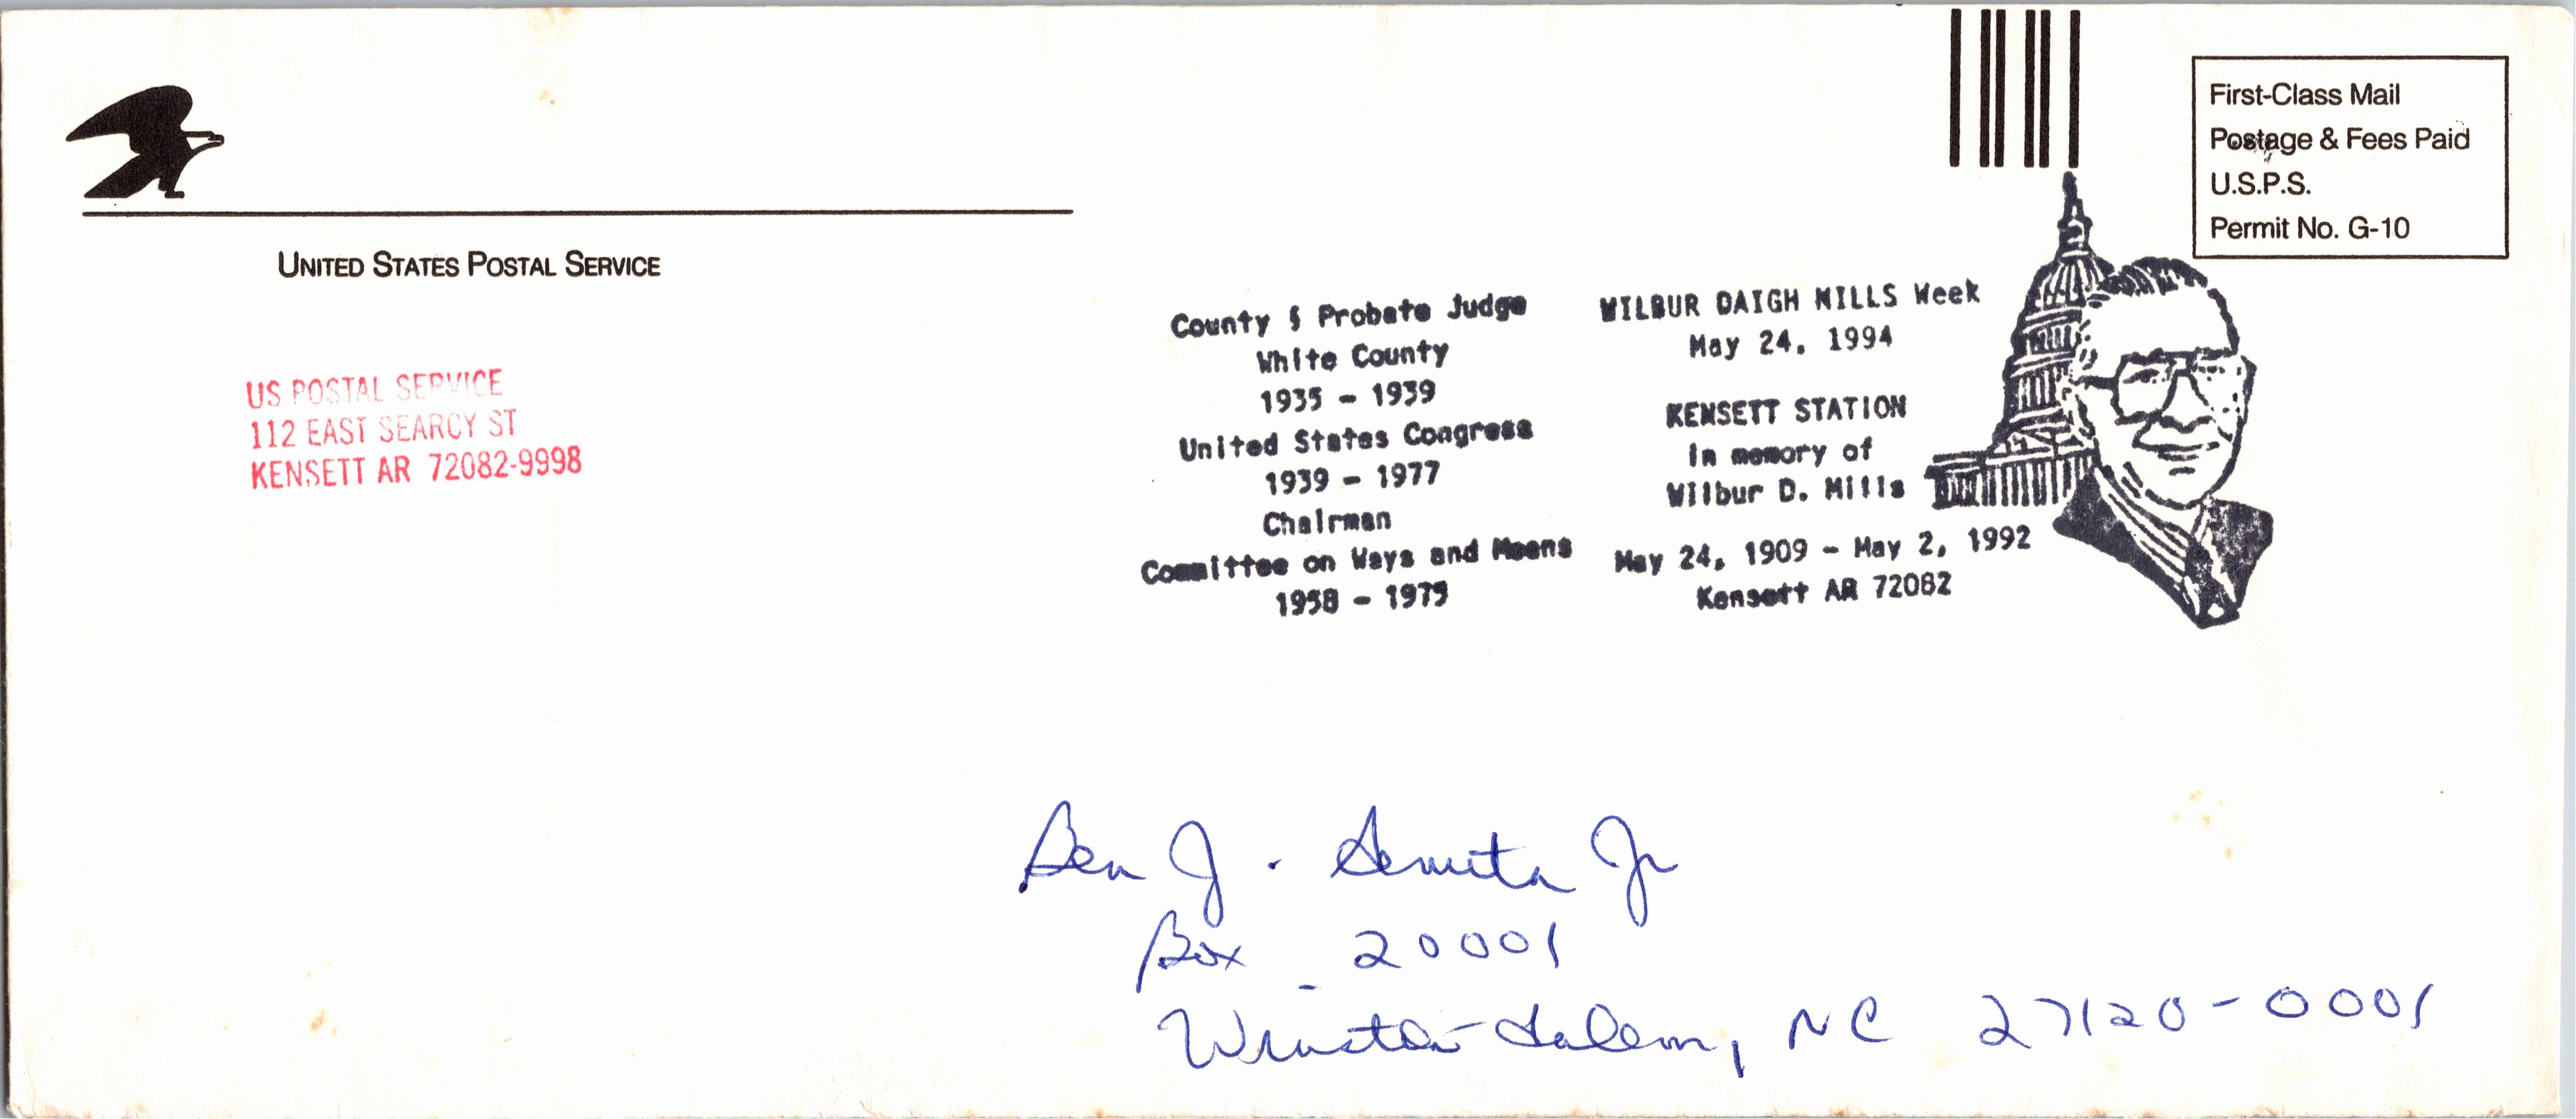 UNITED STATES POSTAL SERVICE
US POSTAL SERVICE
112 EAST SEARCY ST
KENSETT AR 72082-9998
First-Class Mail
Postage & Fees Paid
U.S.P.S.
Permit No. G-10
County § Probate Judge
White County
1935 - 1939
United States Congress
1939 - 1977
Chairman
Committee on Ways and Means
1958 - 1975
WILBUR DAIGH MILLS Week
May 24, 1994
KENSETT STATION
in memory of
Wilbur D. Mills
May 24, 1909 - May 2, 1992
Kensett AR 72082
Ben J. Jr
Box 20001
Winston-Salem, NC 27120-0001